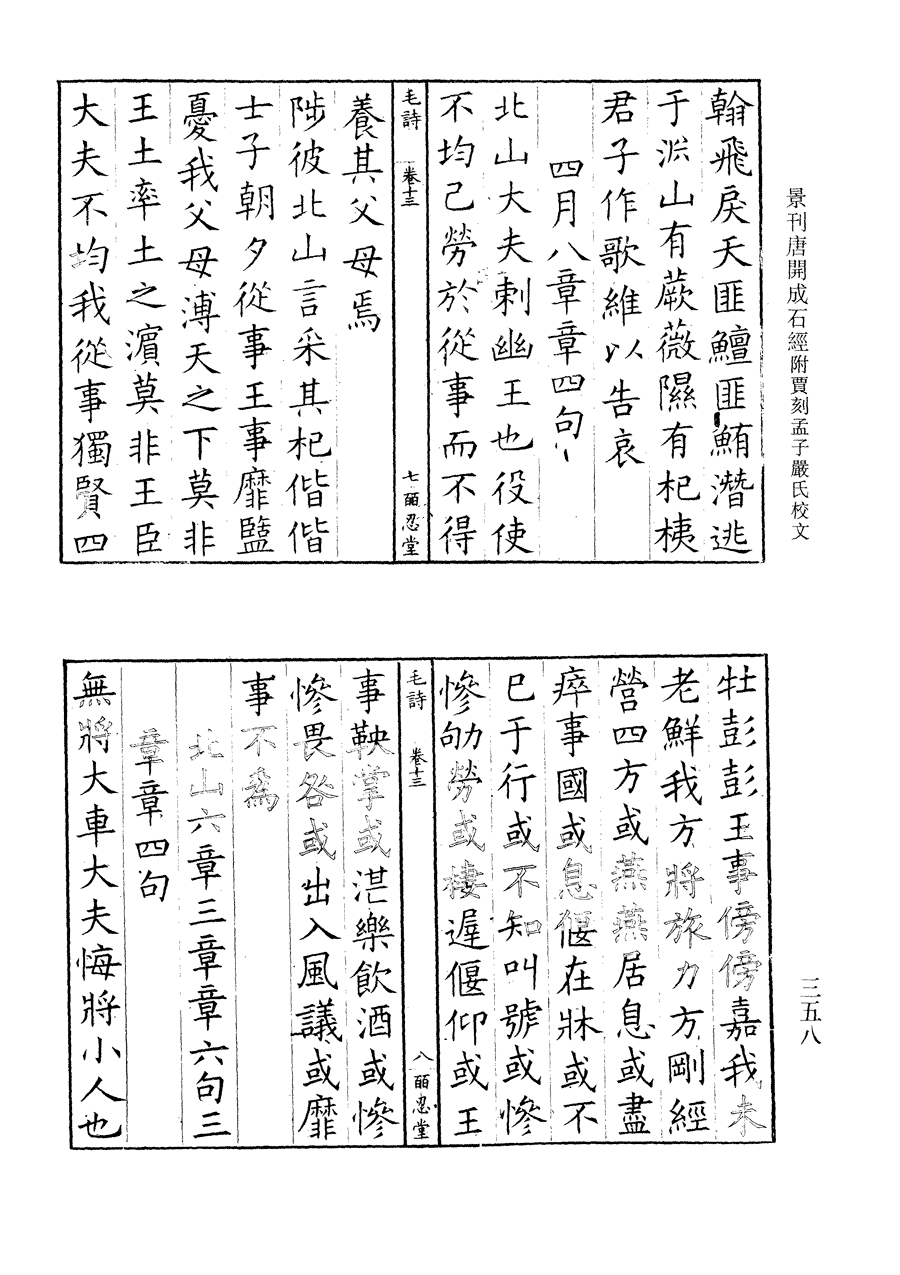 景刊唐開成石經附賈刻孟子嚴氏校文
翰飛戾天匪鱣匪鮪潛逃
于淵山有蕨薇隰有杞桋
君子作歌維以告哀
四月八章章四句
北山大夫刺幽王也役使
不均己勞於從事而不得
毛詩 卷十三 七 皕忍堂
養其父母焉
陟彼北山言采其杞偕偕
士子朝夕從事王事靡盬
憂我父母溥天之下莫非
王土率土之濱莫非王臣
大夫不均我從事獨賢四
牡彭彭王事傍傍嘉我未
老鮮我方將旅力方剛經
營四方或燕燕居息或盡
瘁事國或息偃在牀或不
已于行或不知叫號或慘
慘劬勞或棲遟偃仰或王
毛詩 卷十三 八 皕忍堂
事鞅掌或湛樂飲酒或慘
慘畏咎或出入風議或靡
事不為
北山六章三章章六句三
章章四句
無將大車大夫悔將小人也
三五八